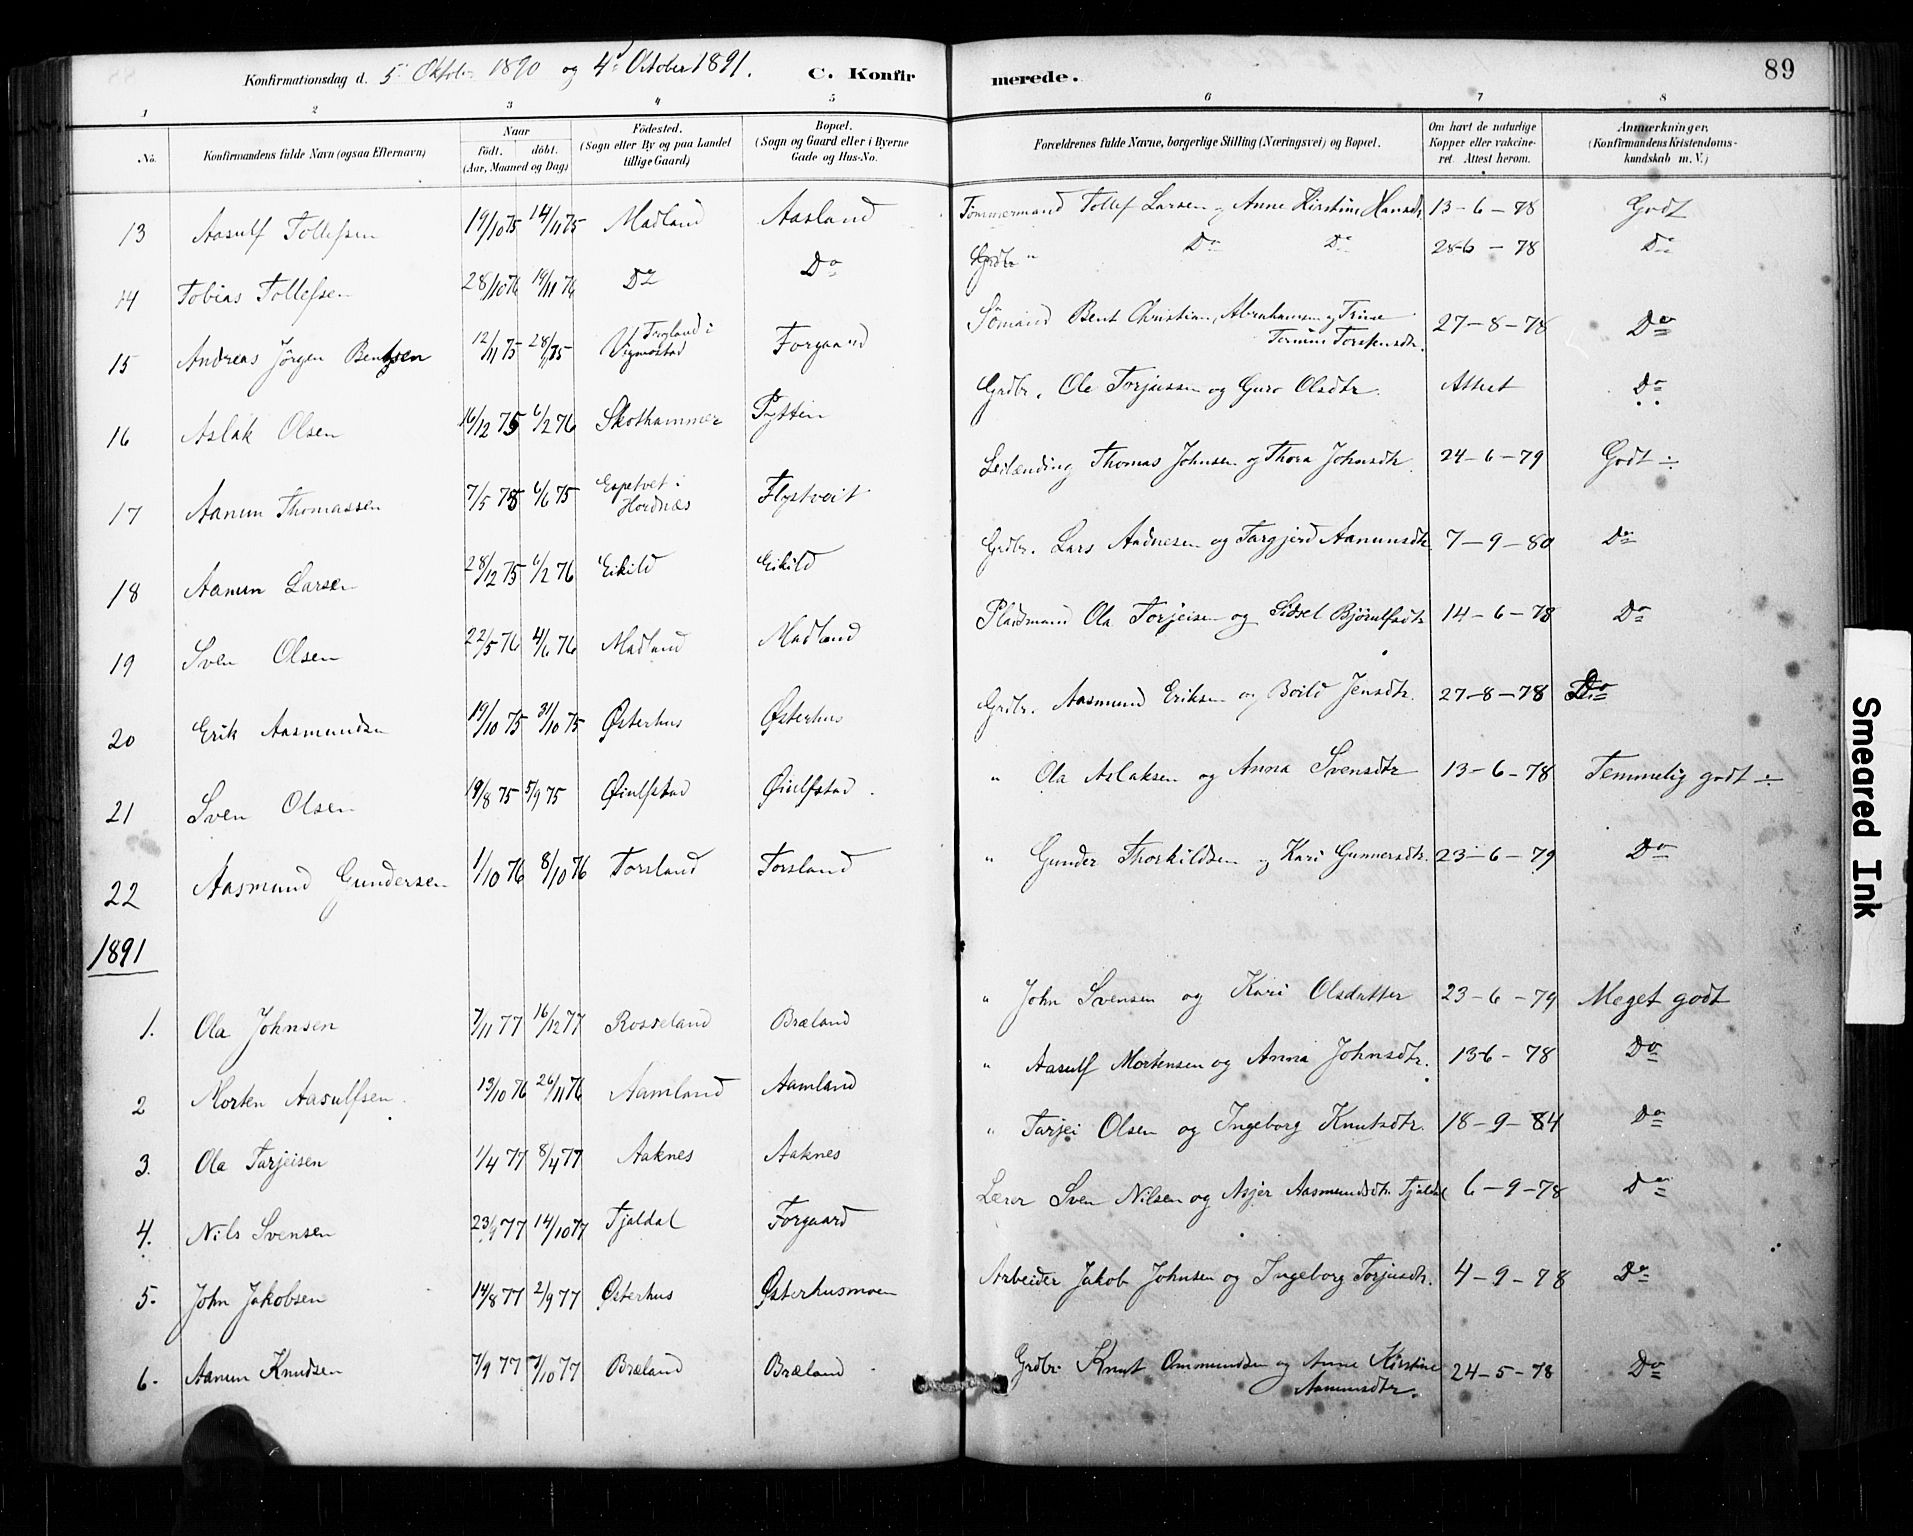 Konfirmationsdag d. 5 Oktob. 1890 og 4d October 1891. C. Konfirmerede. 89
1 2 3 4 5 6 7 8
No. Konfirmandens fulde Navn (ogsaa Efternavn) Naar født. døbt. (Aar, Maaned og Dag) Fødested. (Sogn eller By og paa Landet tillige Gaard) Bopæl. (Sogn og Gaard eller i Byerne Gade og Hus-No. Forældrenes fulde Navne, borgerlige Stilling (Næringsvei) og Bopæl. Om havt de naturlige Kopper eller vakcineret. Attest herom. Anmærkninger. (Konfirmandens Kristendomskundskab m. V.)
13 Aasulf Tollefsen 19/10 75 14/11 75 Madland Aasland Tømmermand Tollef Larsen og Anne Kirstine Hansdtr 13-6-78 Godt
14 Tobias Tollefsen 28/10 76 19/11 76 Do Do Grdbr " Do Do 28-6-78 Do
15 Andreas Jørgen Bentsen 12/11 75 28/ 75 Vigmostad Forgaard Sømand Bent Christian Abrahamsen og Trine 27-8-78 Do
16 Aslak Olsen 16/12 75 6/2 76 Skothammer Pytten Grdbr. Ole Torjussen og Guro Olsdtr. Attest Do
17 Aanun Thomassen 7/5 75 6/6 75 Espetvet i Hordnæs Flystveit Leilænding Thomas Johnsen og Thora Johnsdtr. 24-6-79 Godt ÷
18 Aanun Larsen 28/12 75 6/2 76 Eikild Eikild Grdbr. Lars Aadnesen og Targjerd Aanunsdtr. 7-9-80 Do
19 Sven Olsen 22/5 76 4/6 76 Madland Madland Pladsmand Ola Torjeisen og Sidsel Bjørulfsdtr 14-6-78 Do
20 Erik Aasmundsen 19/10 75 31/10 75 Østerhus Østerhus Grdbr. Aasmund Eriksen og Boild Jensdtr. 27-8-78 Do
21 Sven Olsen 19/8 75 5/9 75 Øiulfstad Øiulfstad. " Ola Aslaksen og Anna Svensdtr 13-6-78 Temmelig godt ÷
22 Aasmund Gundersen 1/10 76 8/10 76 Torsland Torsland " Gunder Thorkildsen og Kari Gunnersdtr. 23-6-79 Do
1891
1. Ola Johnsen 7/11 77 16/12 77 Rosseland Bræland " John Svensen og Kari Olsdatter 23-6-79 Meget godt
2 Morten Aasulfsen. 13/10 76 26/11 76 Aamland Aamland " Aasulf Mortensen og Anna Johnsdtr. 13-6-78 Do
3. Ola Tarjeisen 1/4 77 8/4 77 Aaknes Aaknes " Tarjei Olsen og Ingeborg Knutsdtr. 18-9-84 Do
4. Nils Svensen 23/9 77 14/10 77 Tjaldal Forgaard Lærer Sven Nilsen og Asjer Aasmundsdtr. Tjaldal 6-9-78 Do
5. John Jakobsen 14/8 77 2/9 77 Østerhus Østerhusmoen Arbeider Jakob Johnsen og Ingeborg Torjusdtr. 4-9-78 Do
6. Aanun Knudsen 7/9 77 7/10 77 Bræland Bræland Grdbr. Knut Ommundsen og Anne Kirstine Aanunsdtr. 24-5-78 Do
Smeared Ink